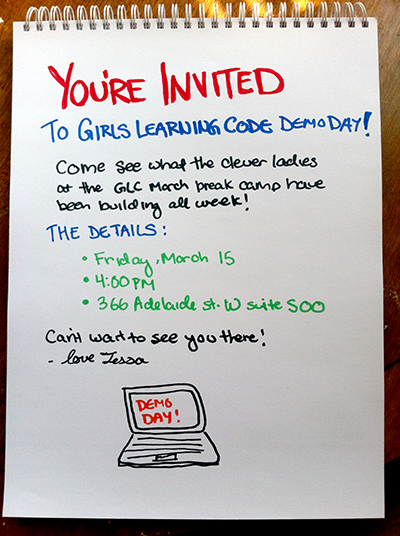 YOU'RE INVITED
TO GIRLS LEARNING CODE DEMO DAY!
Come see what the clever ladies
at the GLC March break camp have
been building all week!
THE DETAILS:
• Friday, March 15
• 4:00 PM
• 366 Adelaide st. W suite 500
Can't wait to see you there!
- love Tessa
DEMO
DAY!